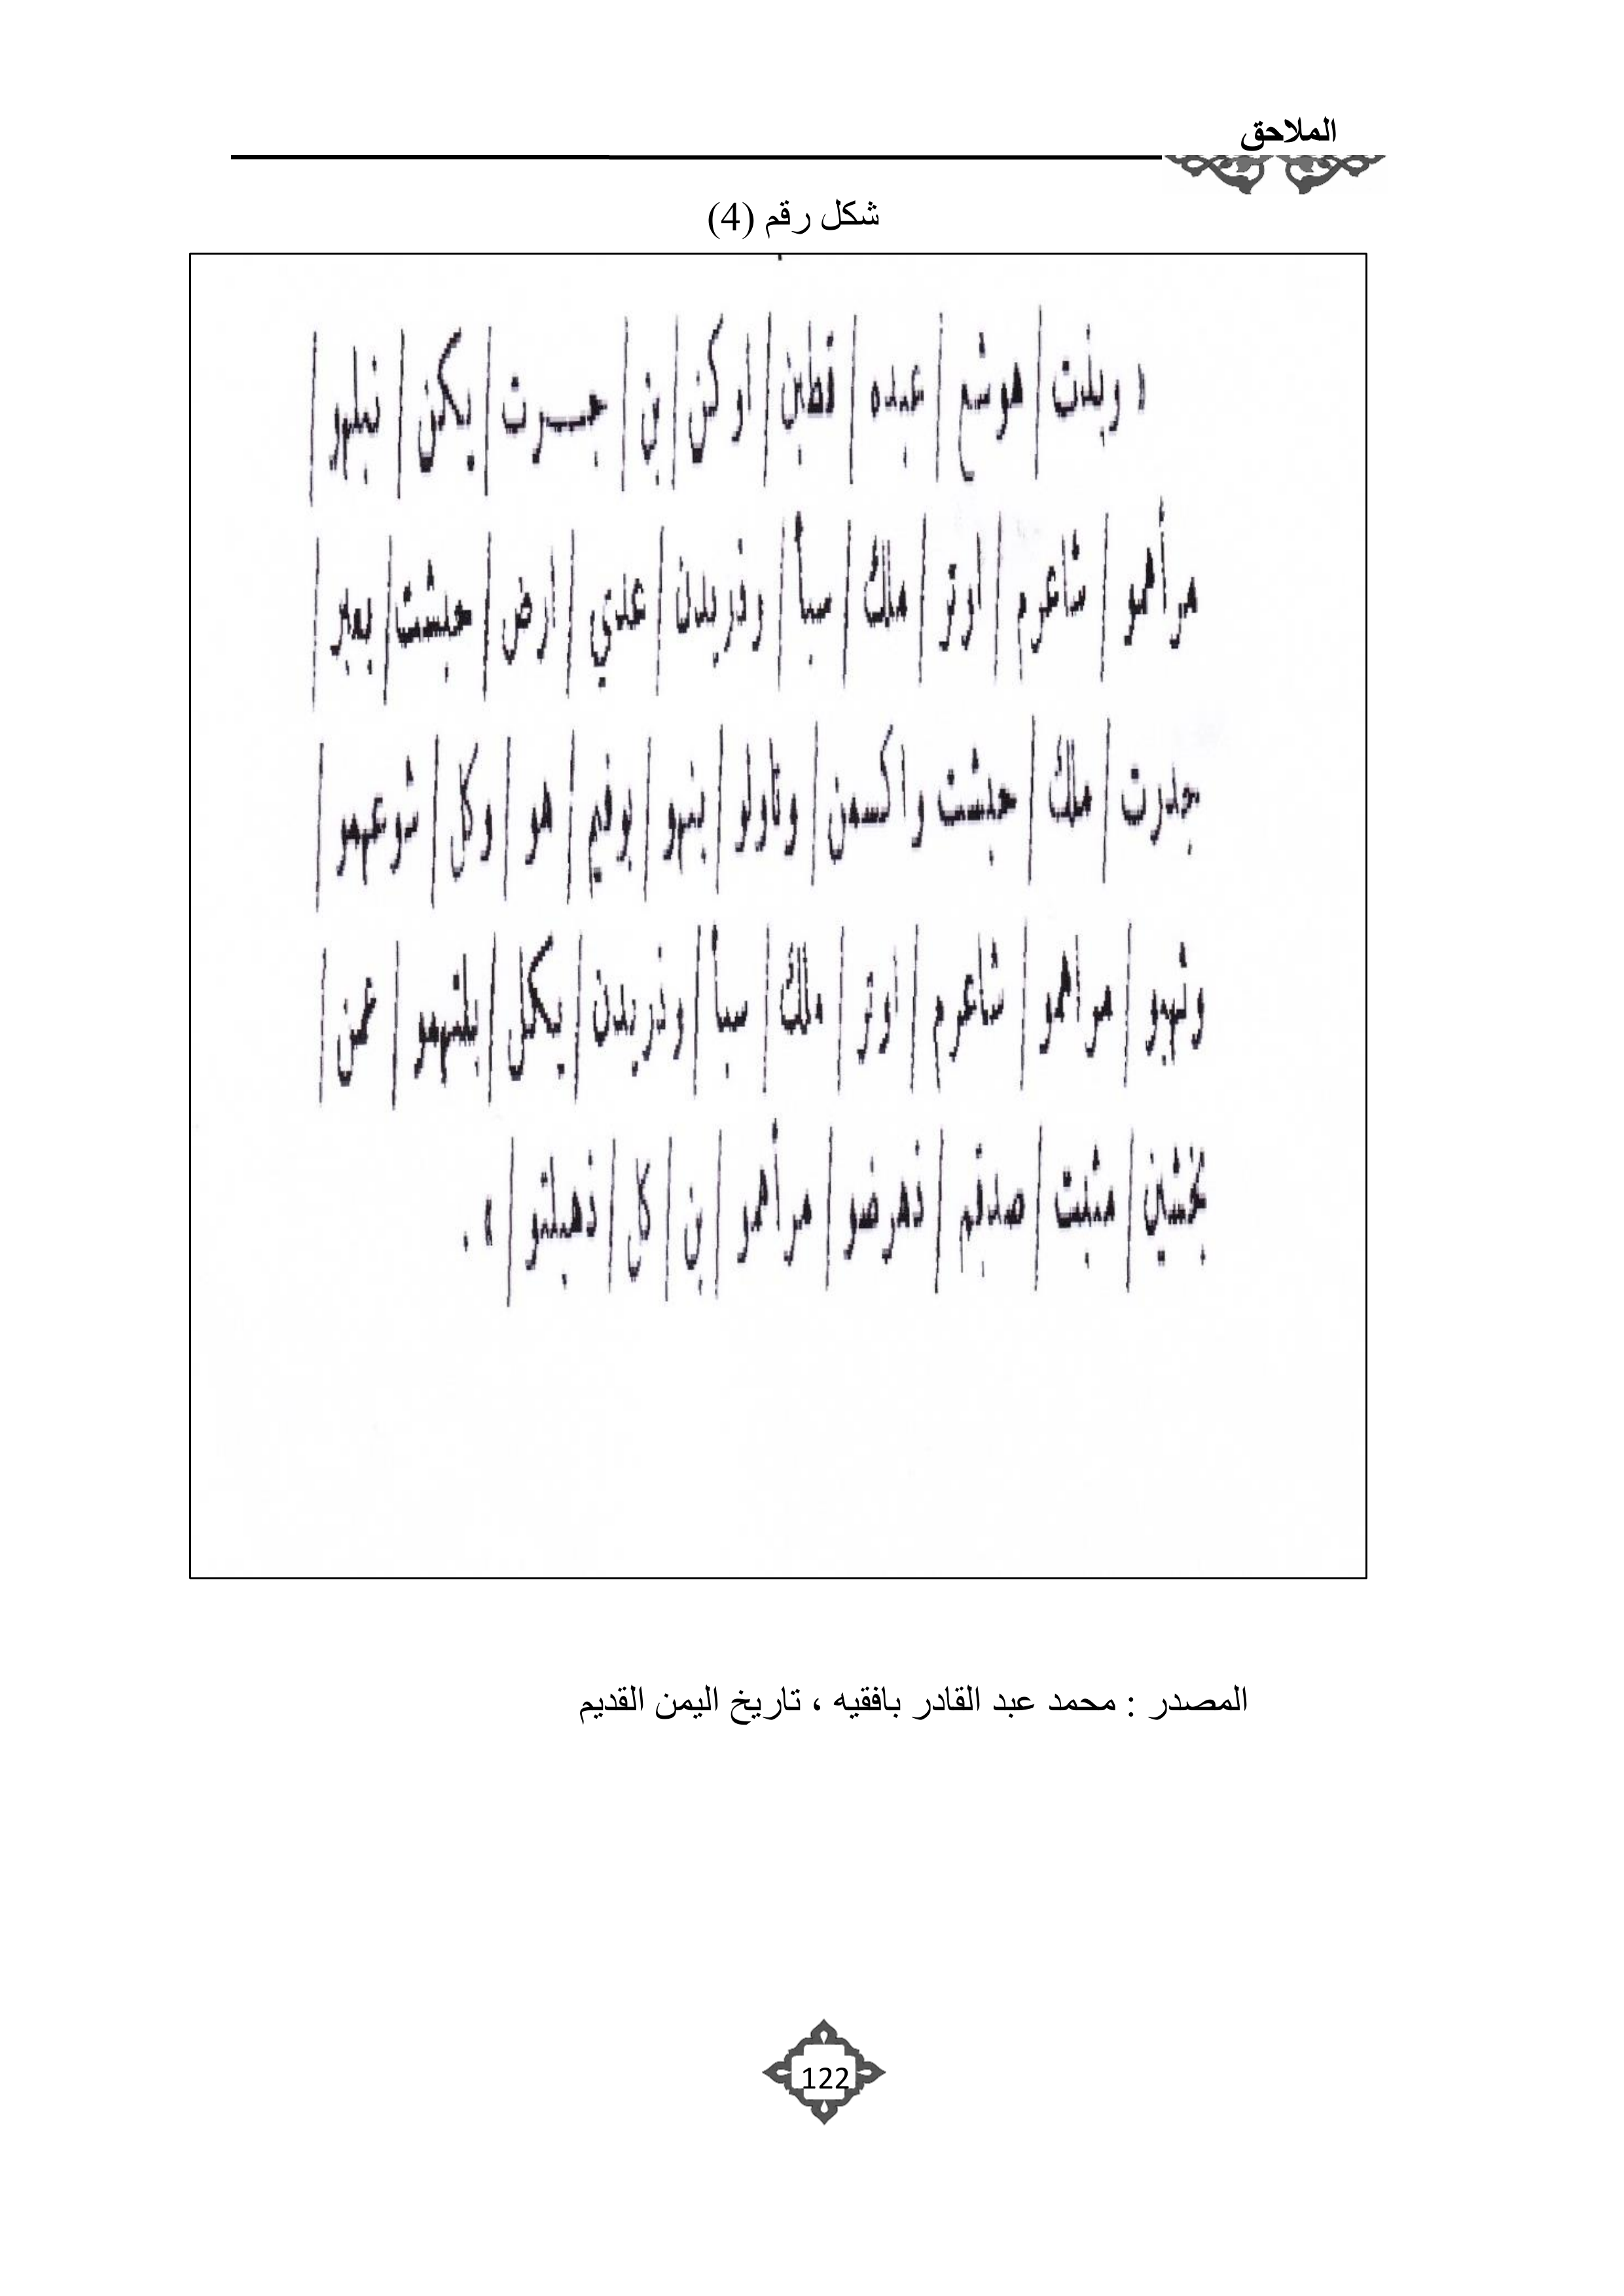 الملاحق
شكل رقم (4)
« وبذت | هوشع | عبده | قطبن | اوكن | بن | جبرت | بكن | نبلهو |
مرأهمو | شاعرم | اوتر | ملك | سبأ | وذريدن | عدي | ارض | حبشت |
جدرت | ملك | حبشت واكسمن | وتاولو | بنهو | بوفيم | هو | وكل | شوعهمو |
ونهيو | مراهمو | شاعرم | اوتر | ملك | سبأ | وذريدن | بكل | بلتهمو | عن |
| مثبت | صدقم | ذهرضو | مرأهمو | بن | كل | ذهبلتو | » .
المصدر : محمد عبد القادر بافقيه ، تاريخ اليمن القديم
122